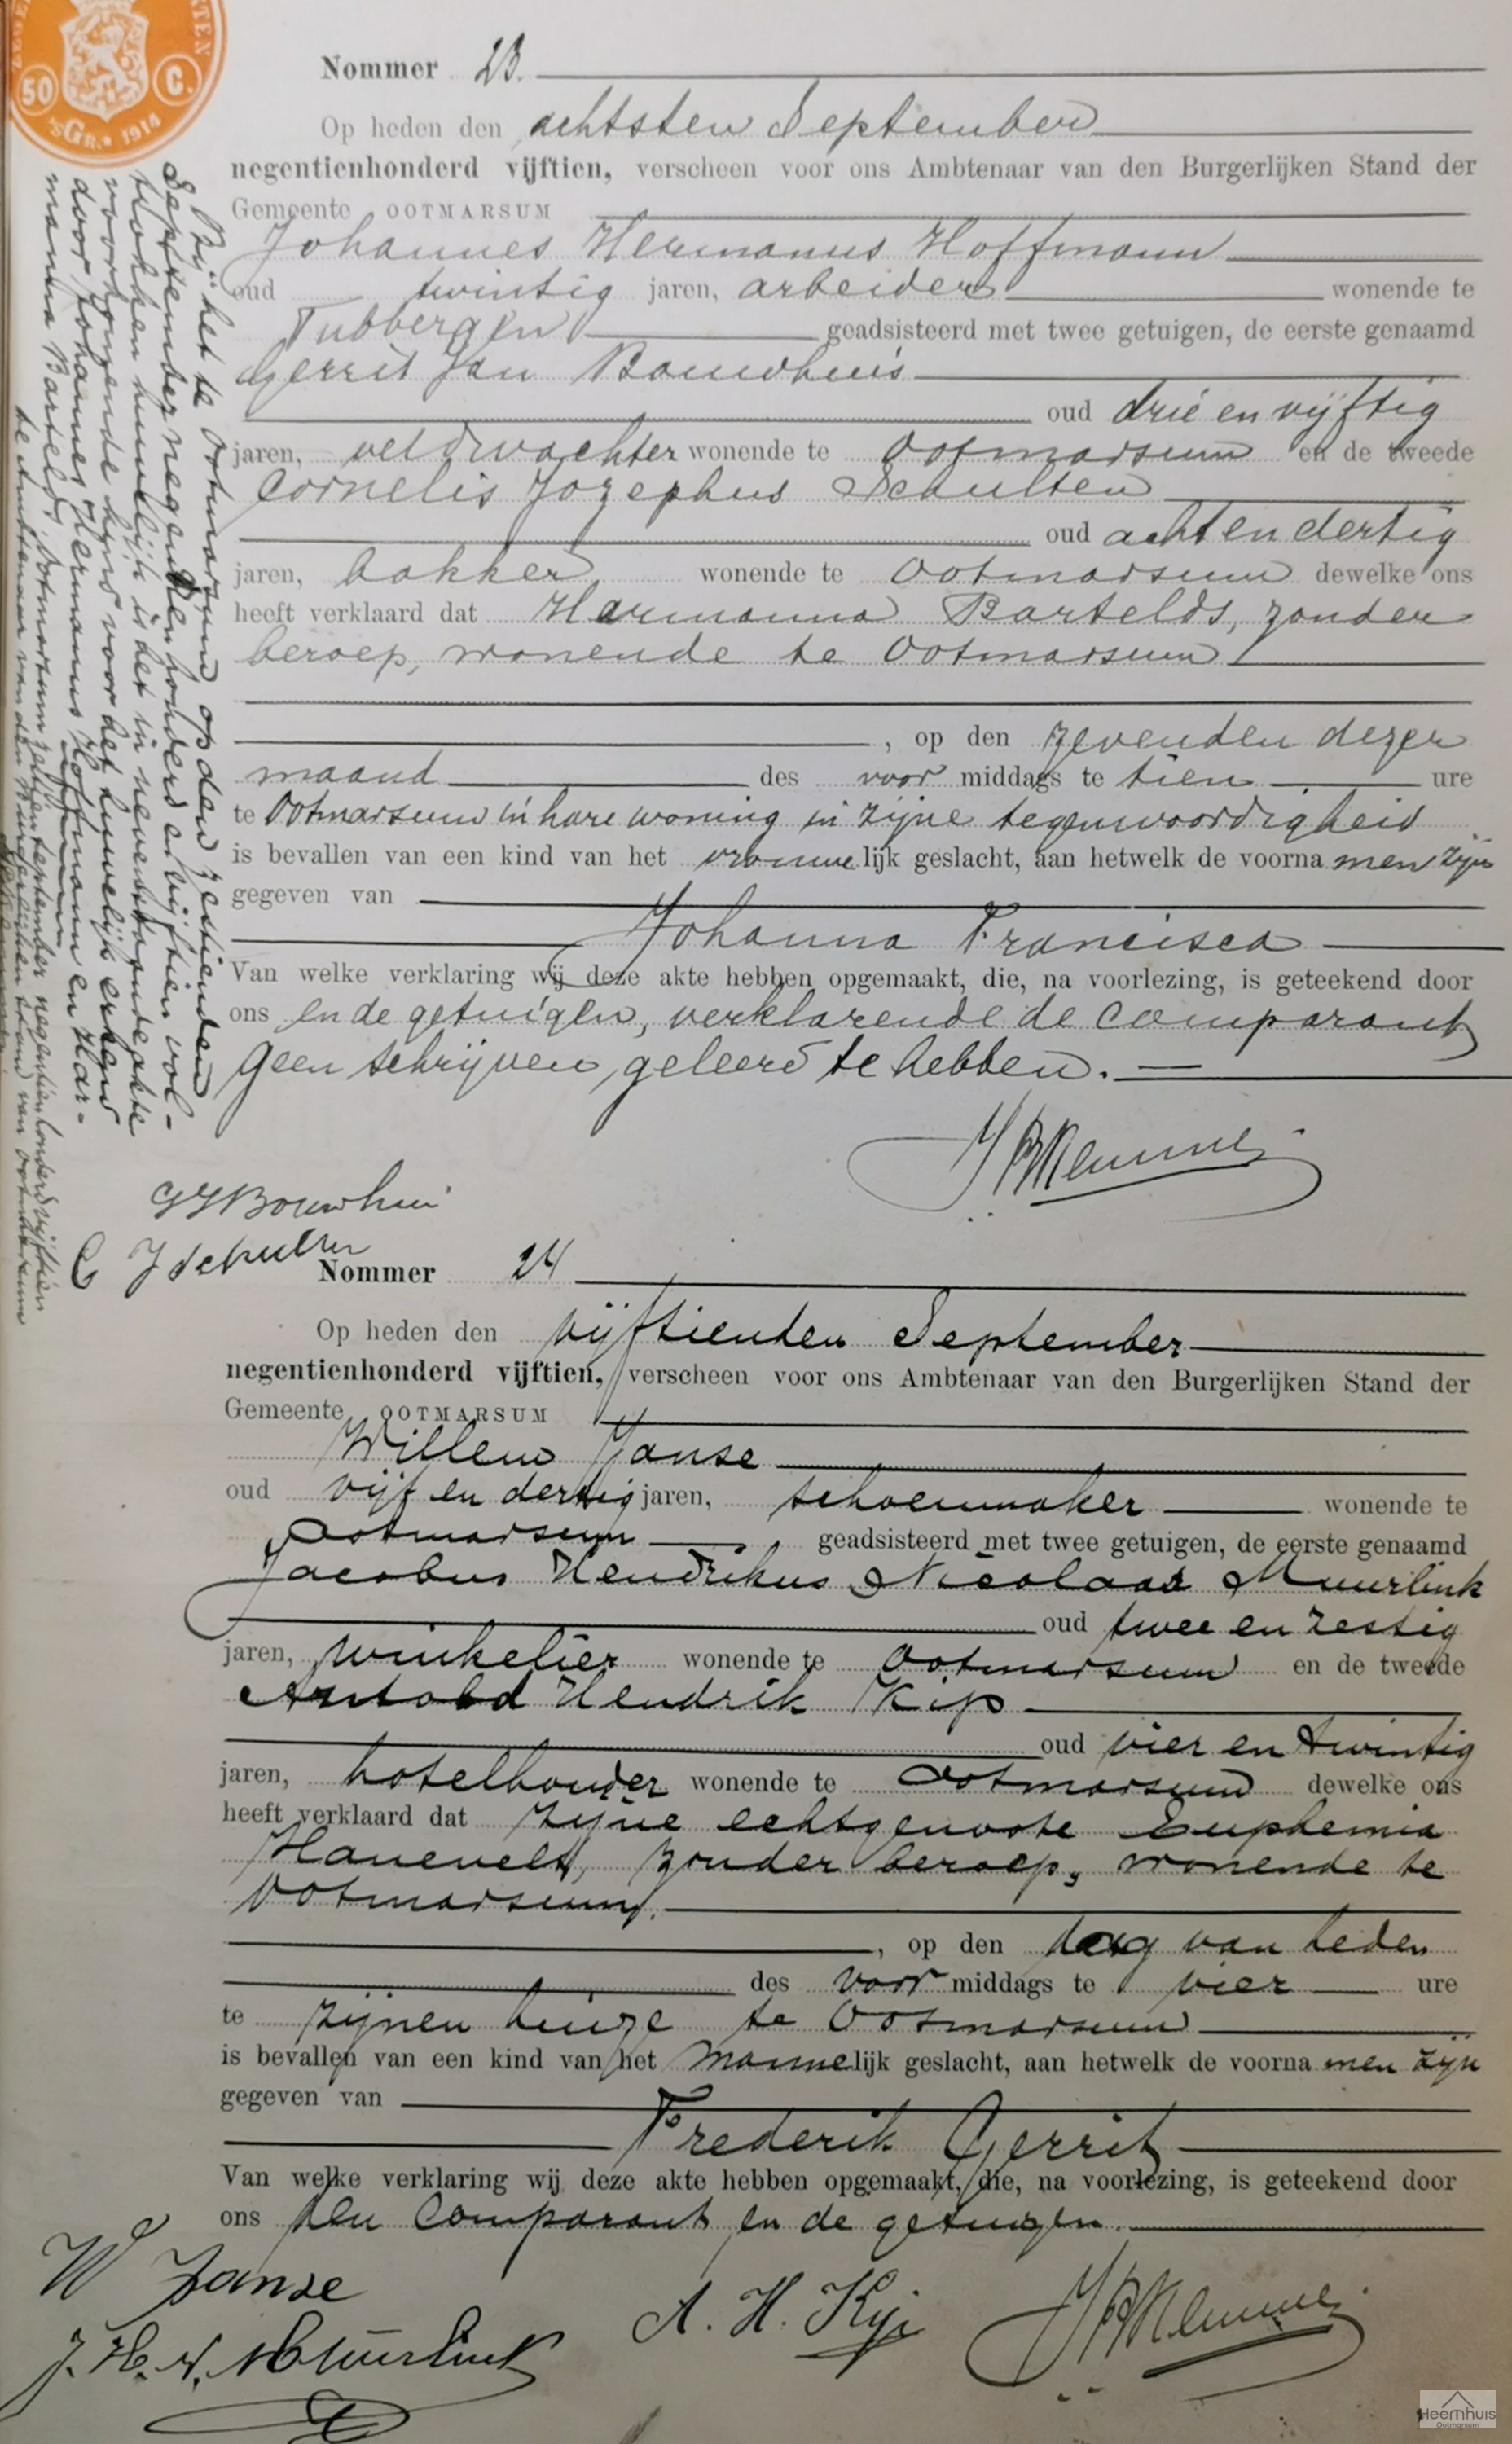 50 C.
'SGR. 1914
Nommer 23.
Op heden den achtsten September
negentienhonderd vijftien, verscheen voor ons Ambtenaar van den Burgerlijken Stand der
Gemeente OOTMARSUM
Johannes Hermanus Hoffmann
oud twintig jaren, arbeider wonende te
Tubbergen geadsisteerd met twee getuigen, de eerste genaamd
Gerrit Jan Bouwhuis
oud drie en vijftig
jaren, veldwachter wonende te Ootmarsum en de tweede
Cornelis Jozephus Schulten
oud acht en dertig
jaren, bakker, wonende te Ootmarsum dewelke ons
heeft verklaard dat Harmanna Bartelds, zonder
beroep, wonende te Ootmarsum
, op den zevenden dezer
maand des voor middags te tien ure
te Ootmarsum in hare woning in zijne tegenwoordigheid
is bevallen van een kind van het vrouwelijk geslacht, aan hetwelk de voorna men zijn
gegeven van
Johanna Francisca
Van welke verklaring wij deze akte hebben opgemaakt, die, na voorlezing, is geteekend door
ons en de getuigen, verklarende de comparant
geen schrijven geleerd te hebben.
GJBouwhuis
C J Schulten
Bij het te Ootmarsum op den zestienden
September negentienhonderd en vijftien vol-
trokken huwelijk is het in nevenstaande akte
voorkomende kind voor het huwelijk erkend
door Johannes Hermanus Hoffmann en Har-
manna Bartelds. Ootmarsum zestien September negentienhonderd vijftien
De Ambtenaar van den Burgerlijken Stand van Ootmarsum
Nommer 24
Op heden den vijftienden September
negentienhonderd vijftien, verscheen voor ons Ambtenaar van den Burgerlijken Stand der
Gemeente OOTMARSUM
Willem Janse
oud vijf en dertig jaren, schoenmaker wonende te
Ootmarsum geadsisteerd met twee getuigen, de eerste genaamd
Jacobus Hendrikus Nicolaas Muurlink
oud twee en zestig
jaren, winkelier wonende te Ootmarsum en de tweede
Arnold Hendrik Kip
oud vier en twintig
jaren, hotelhouder wonende te Ootmarsum dewelke ons
heeft verklaard dat zijne echtgenoote Euphemia
Hanevelt, zonder beroep, wonende te
Ootmarsum,
, op den dag van heden
des voor middags te vier ure
te zijnen huize te Ootmarsum
is bevallen van een kind van het mannelijk geslacht, aan hetwelk de voorna men zijn
gegeven van
Frederik Gerrit
Van welke verklaring wij deze akte hebben opgemaakt, die, na voorlezing, is geteekend door
ons den comparant en de getuigen.
W Janse
A. H. Kip
J. H. N. Muurlink
Heemhuis
Ootmarsum